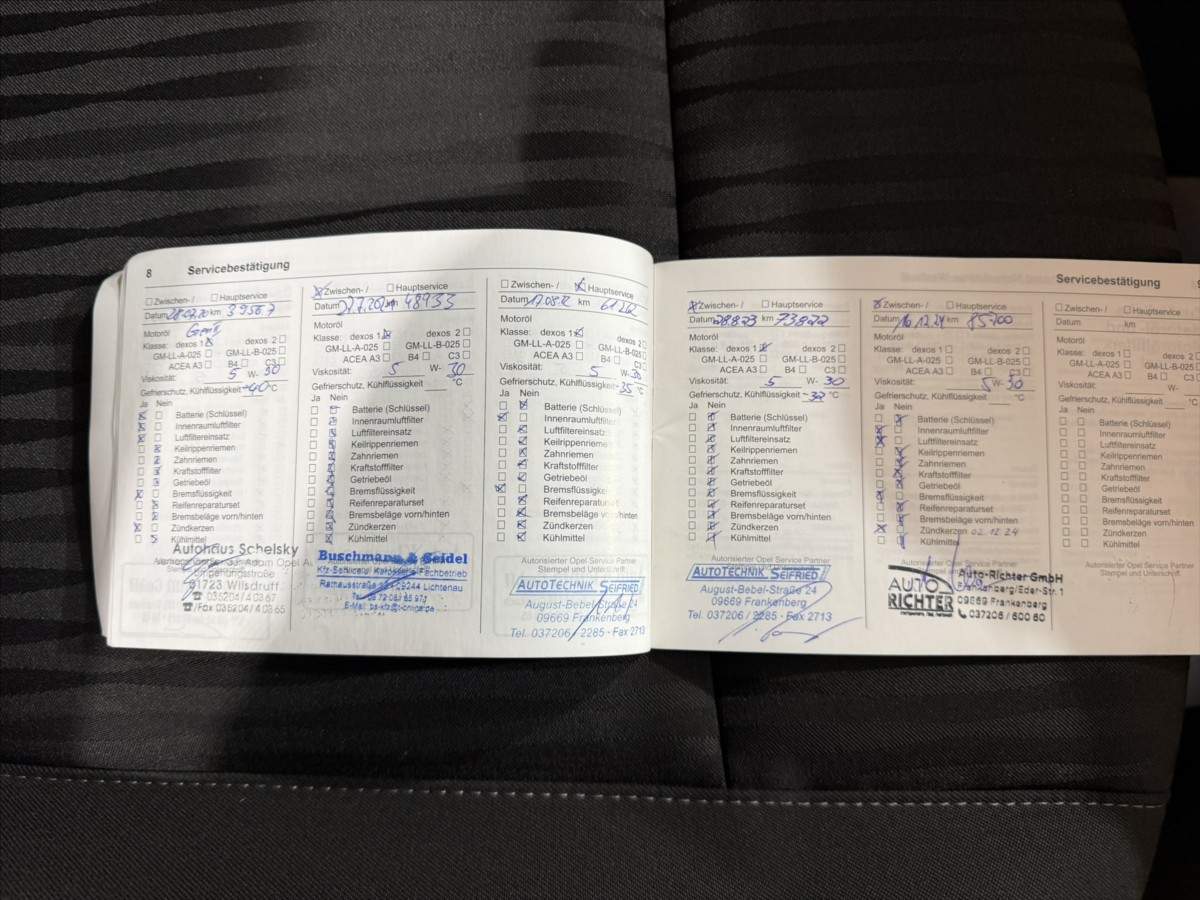 8 Servicebestätigung
☐ Zwischen- / ☐ Hauptservice
Datum 28.07.20 km 39567
Motoröl
Klasse: dexos 1 ☒ dexos 2 ☐
GM-LL-A-025 ☐ GM-LL-B-025 ☐
ACEA A3 ☐ B4 ☐ C3 ☐
Viskosität: 5 W- 30
Gefrierschutz, Kühlflüssigkeit -40 °C
Ja Nein
☒ ☐ Batterie (Schlüssel)
☒ ☐ Innenraumluftfilter
☒ ☐ Luftfiltereinsatz
☐ ☒ Keilrippenriemen
☐ ☒ Zahnriemen
☐ ☒ Kraftstofffilter
☐ ☒ Getriebeöl
☒ ☐ Bremsflüssigkeit
☐ ☒ Reifenreparaturset
☐ ☒ Bremsbeläge vorn/hinten
☒ ☐ Zündkerzen
☐ ☒ Kühlmittel
Autohaus Schelsky
01723 Wilsdruff
☎ 035204 / 4 03 67
☎/Fax 035204 / 4 03 65
☒ Zwischen- / ☐ Hauptservice
Datum 27.7.2021 km 48933
Motoröl
Klasse: dexos 1 ☒ dexos 2 ☐
GM-LL-A-025 ☐ GM-LL-B-025 ☐
ACEA A3 ☐ B4 ☐ C3 ☐
Viskosität: 5 W- 30
Gefrierschutz, Kühlflüssigkeit °C
Ja Nein
☐ ☒ Batterie (Schlüssel)
☐ ☒ Innenraumluftfilter
☐ ☒ Luftfiltereinsatz
☐ ☒ Keilrippenriemen
☐ ☒ Zahnriemen
☐ ☒ Kraftstofffilter
☐ ☒ Getriebeöl
☐ ☒ Bremsflüssigkeit
☐ ☒ Reifenreparaturset
☐ ☒ Bremsbeläge vorn/hinten
☐ ☒ Zündkerzen
☐ ☒ Kühlmittel
Buschmann & Seidel
Fachbetrieb
09244 Lichtenau
☐ Zwischen- / ☒ Hauptservice
Datum 17.08.22 km
Motoröl
Klasse: dexos 1 ☒ dexos 2 ☐
GM-LL-A-025 ☐ GM-LL-B-025 ☐
ACEA A3 ☐ B4 ☐ C3
Viskosität: 5 W- 30
Gefrierschutz, Kühlflüssigkeit -35 °C
Ja Nein
☐ ☒ Batterie (Schlüssel)
☒ ☐ Innenraumluftfilter
☐ ☒ Luftfiltereinsatz
☐ ☒ Keilrippenriemen
☐ ☒ Zahnriemen
☐ ☒ Kraftstofffilter
☐ ☒ Getriebeöl
☒ ☐ Bremsflüssigke
☐ ☒ Reifenreparaturset
☐ ☒ Bremsbeläge vorn/hinten
☐ ☒ Zündkerzen
☐ ☒ Kühlmittel
Autorisierter Opel Service Partner
Stempel und Unterschrift
AUTOTECHNIK SEIFRIED
August-Bebel-Straße 24
09669 Frankenberg
Tel. 037206 / 2285 · Fax 2713
Servicebestätigung 9
☒ Zwischen- / ☐ Hauptservice
Datum 28.8.23 km 73822
Motoröl
Klasse: dexos 1 ☒ dexos 2 ☐
GM-LL-A-025 ☐ GM-LL-B-025 ☐
ACEA A3 ☐ B4 ☐ C3 ☐
Viskosität: 5 W- 30
Gefrierschutz, Kühlflüssigkeit -38 °C
Ja Nein
☐ ☒ Batterie (Schlüssel)
☐ ☒ Innenraumluftfilter
☐ ☒ Luftfiltereinsatz
☐ ☒ Keilrippenriemen
☐ ☒ Zahnriemen
☐ ☒ Kraftstofffilter
☐ ☒ Getriebeöl
☐ ☒ Bremsflüssigkeit
☐ ☒ Reifenreparaturset
☐ ☒ Bremsbeläge vorn/hinten
☐ ☒ Zündkerzen
☐ ☒ Kühlmittel
Autorisierter Opel Service Partner
Stempel und Unterschrift
AUTOTECHNIK SEIFRIED
August-Bebel-Straße 24
09669 Frankenberg
Tel. 037206 / 2285 · Fax 2713
☒ Zwischen- / ☐ Hauptservice
Datum 10.12.24 km 85700
Motoröl
Klasse: dexos 1 ☐ dexos 2 ☐
GM-LL-A-025 ☐ GM-LL-B-025 ☐
ACEA A3 ☐ B4 ☐ C3 ☐
Viskosität: 5 W- 30
Gefrierschutz, Kühlflüssigkeit °C
Ja Nein
☐ ☒ Batterie (Schlüssel)
☒ ☐ Innenraumluftfilter
☒ ☐ Luftfiltereinsatz
☐ ☒ Keilrippenriemen
☐ ☒ Zahnriemen
☐ ☒ Kraftstofffilter
☐ ☒ Getriebeöl
☒ ☐ Bremsflüssigkeit
☐ ☒ Reifenreparaturset
☐ ☒ Bremsbeläge vorn/hinten
☒ ☐ Zündkerzen 02.12.24
☐ ☒ Kühlmittel
AUTO RICHTER
Auto-Richter GmbH
Frankenberg/Eder-Str. 1
09669 Frankenberg
037206 / 600 80
☐ Zwischen- / ☐ Hauptservice
Datum km
Motoröl
Klasse: dexos 1 ☐ dexos 2 ☐
GM-LL-A-025 ☐ GM-LL-B-025 ☐
ACEA A3 ☐ B4 ☐ C3 ☐
Viskosität: W-
Gefrierschutz, Kühlflüssigkeit °C
Ja Nein
☐ ☐ Batterie (Schlüssel)
☐ ☐ Innenraumluftfilter
☐ ☐ Luftfiltereinsatz
☐ ☐ Keilrippenriemen
☐ ☐ Zahnriemen
☐ ☐ Kraftstofffilter
☐ ☐ Getriebeöl
☐ ☐ Bremsflüssigkeit
☐ ☐ Reifenreparaturset
☐ ☐ Bremsbeläge vorn/hinten
☐ ☐ Zündkerzen
☐ ☐ Kühlmittel
Autorisierter Opel Service Partner
Stempel und Unterschrift